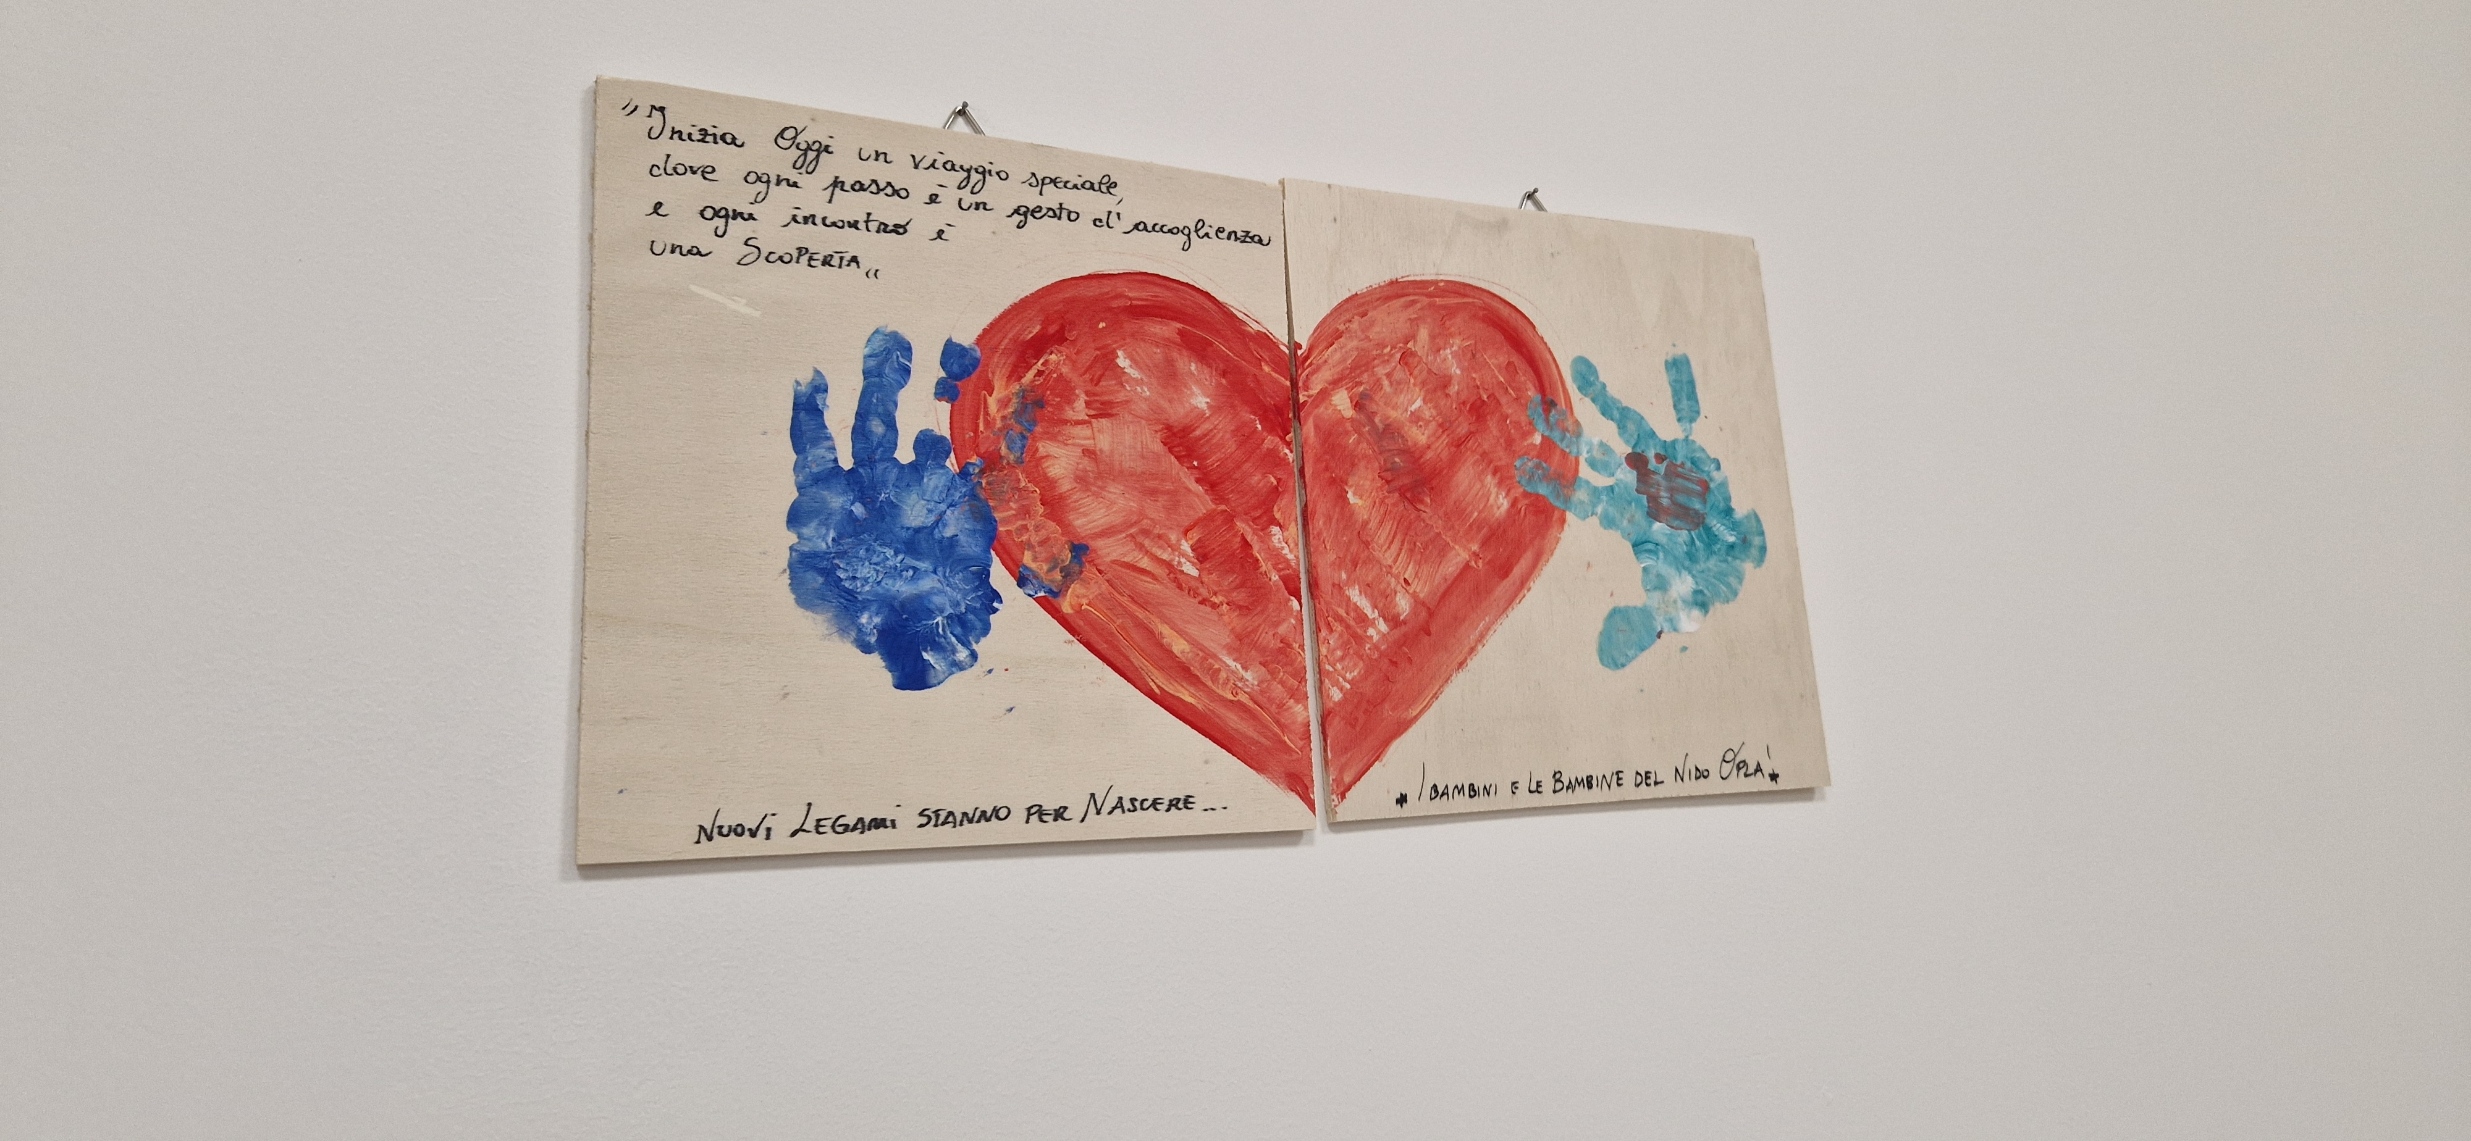 "Inizia Oggi un viaggio speciale,
dove ogni passo è un gesto d'accoglienza
e ogni incontro è
una SCOPERTA"
NUOVI LEGAMI STANNO PER NASCERE...
* I BAMBINI E LE BAMBINE DEL NIDO OPLA' *